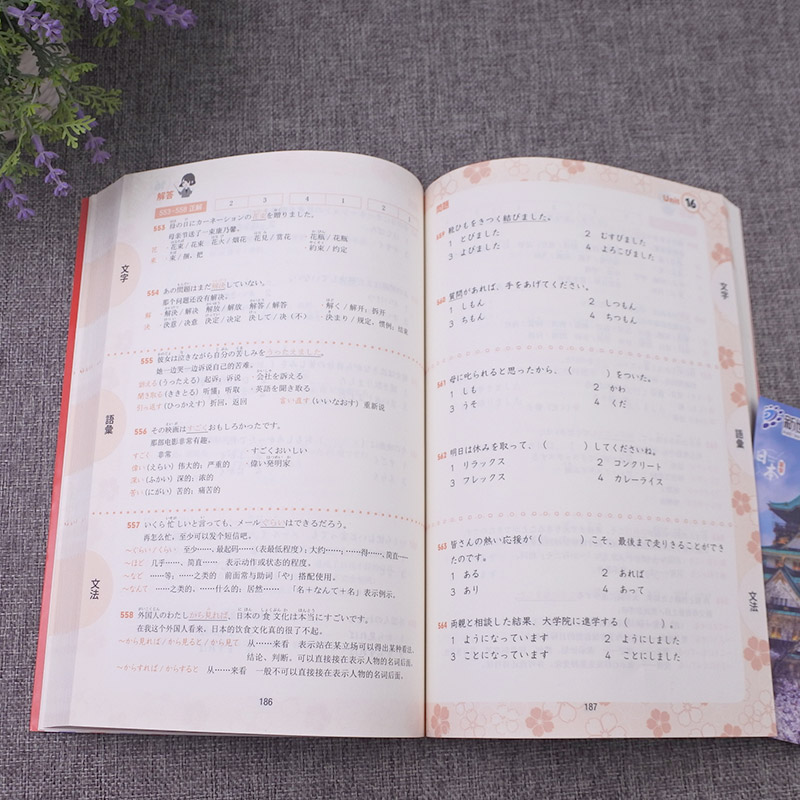 解答
553~558 正解
2 3 4 1 2 1
553 母の日にカーネーションの花束を贈りました。
母亲节送了一束康乃馨。
花 花束/花束 花火/烟花 花見/赏花 花瓶/花瓶
束 束/捆，把 約束/约定
554 あの問題はまだ解決していない。
那个问题还没有解决。
解 解決/解决 解放/解放 解答/解答 解く/解开；拆开
決 決意/决意 決定/决定 決して/决（不） 決まり/规定，惯例；结束
555 彼女は泣きながら自分の苦しみをうったえました。
她一边哭一边诉说自己的苦难。
訴える（うったえる）起诉；诉说 会社を訴える
聞き取る（ききとる）听懂；听取 英語を聞き取る
引っ返す（ひっかえす）折回，返回 言い直す（いいなおす）重新说
556 その映画はすごくおもしろかったです。
那部电影非常有趣。
すごく 非常 すごくおいしい
偉い（えらい）伟大的；严重的 偉い発明家
深い（ふかい）深的；浓的
苦い（にがい）苦的；痛苦的
557 いくら忙しいと言っても、メールぐらいはできるだろう。
再怎么忙，至少可以发个短信吧。
～くらい/ぐらい 至少……，最起码……（表最低程度）；大约……；……得……，简直……
～ほど 几乎……，简直…… 表示动作或状态的程度。
～など ……等；……之类的 前面常与助词「や」搭配使用。
～なんて ……之类的，……什么的；居然…… 「名＋なんて＋名」表示例示。
558 外国人のわたしから見れば、日本の食文化は本当にすごいです。
在我这个外国人看来，日本的饮食文化真的很了不起。
～から見れば/から見ると/から見て 从……来看 表示站在某立场可以得出某种看法、
结论、判断。可以直接接在表示人物的名词后面。
～からすれば/からすると 从……来看 一般不可以直接接在表示人物的名词后面。
186
文字
語彙
文法
問題
Unit 16
559 靴ひもをきつく結びました。
1 とびました 2 むすびました
3 よびました 4 よろこびました
560 質問があれば、手をあげてください。
1 しもん 2 しつもん
3 ちもん 4 ちつもん
561 母に叱られると思ったから、（ ）をついた。
1 しも 2 かわ
3 うそ 4 くだ
562 明日は休みを取って、（ ）してくださいね。
1 リラックス 2 コンクリート
3 フレックス 4 カレーライス
563 皆さんの熱い応援が（ ）こそ、最後まで走りきることができ
たのです。
1 ある 2 あれば
3 あり 4 あって
564 両親と相談した結果、大学院に進学する（ ）。
1 ようになっています 2 ようにしました
3 ことになっています 4 ことにしました
187
文字
語彙
文法
日本